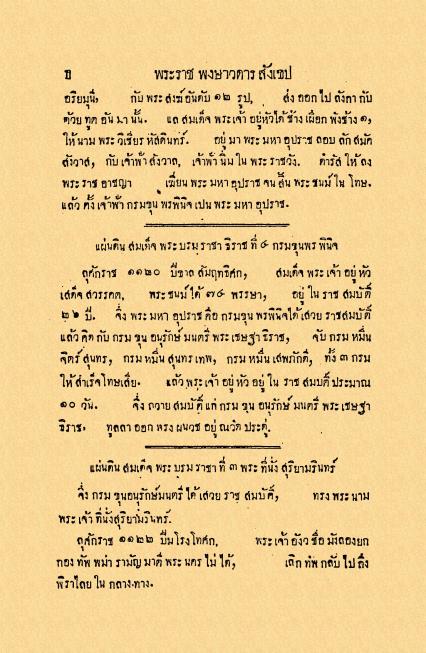 ข พระราช พงษาวดาร สังเขป
อริยมุนี, กับ พระ สงฆ์ อันดับ ๑๒ รูป, ส่ง ออก ไป ลังกา กับ
ด้วย ทูต อัน มา นั้น. แล สมเด็จ พระเจ้า อยู่หัวได้ ช้าง เผือก พังช้าง ๑,
ให้ นาม พระ วิเชียร หัสดินทร์. อยู่ มา พระ มหา อุปราช ลอบ ลัก สมัค
สังวาส, กับ เจ้าฟ้า สังวาล, เจ้าฟ้า นิ่ม ใน พระ ราชวัง. ดำรัส ให้ ลง
พระ ราช อาชญา เฆี่ยน พระ มหา อุปราช จน สิ้น พระ ชนม์ ใน โทษ.
แล้ว ตั้ง เจ้าฟ้า กรมขุน พรพินิจ เปน พระ มหา อุปราช.
แผ่นดิน สมเด็จ พระ บรม ราชา ธิราช ที่ ๔ กรมขุนพร พินิจ
ลุศักราช ๑๑๒๐ ปีขาล สัมฤทธิศก, สมเด็จ พระ เจ้า อยู่ หัว
เสด็จ สวรรคต, พระ ชนม์ ได้ ๗๘ พรรษา, อยู่ ใน ราช สมบัติ
๒๖ ปี. จึ่ง พระ มหา อุปราช คือ กรมขุน พรพินิจได้ เสวย ราชสมบัติ
แล้ว คิด กับ กรม ขุน อนุรักษ์ มนตรี พระ เชษฐา ธิราช, จับ กรม หมื่น
จิตร์ สุนทร, กรม หมื่น สุนทร เทพ, กรม หมื่น เสพภักดิ์, ทั้ง ๓ กรม
ให้ สำเร็จ โทษเสีย. แล้ว พระ เจ้า อยู่ หัว อยู่ ใน ราช สมบติ ประมาณ
๑๐ วัน. จึ่ง ถวาย สมบัติ แก่ กรม ขุน อนุรักษ์ มนตรี พระ เชษฐา
ธิราช. ทูลลา ออก ทรง ผนวช อยู่ ณวัด ประดู่.
แผ่นดิน สมเด็จ พระ บรม ราชา ที่ ๓ พระ ที่นั่ง สุริยามรินทร์
จึ่ง กรม ขุนอนุรักษ์มนตรี ได้ เสวย ราช สมบัติ, ทรง พระ นาม
พระ เจ้า ที่นั่งสุริยามรินทร์.
ลุศักราช ๑๑๒๒ ปีมโรงโทศก, พระ เจ้า อังวะ ชื่อ มังลองยก
กอง ทัพ พม่า รามัญ มาตี พระ นคร ไม่ ได้, เลิก ทัพ กลับ ไป ถึง
พิราไลย ใน กลาง.ทาง.